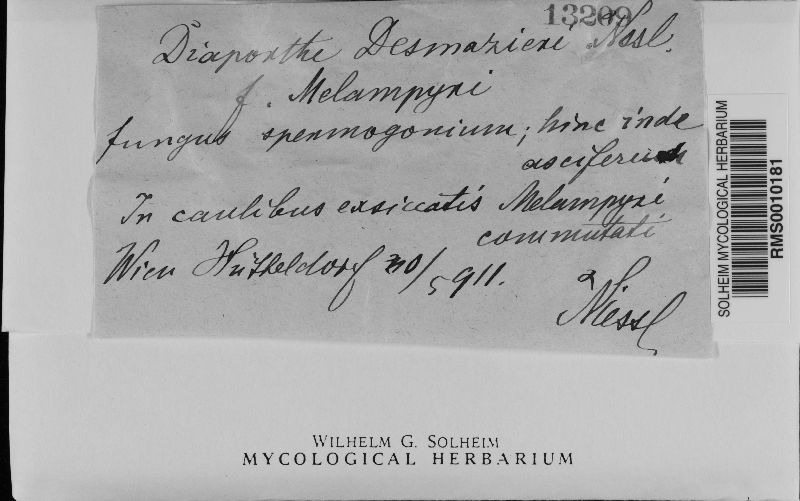 13209
Diaporthe Desmazieri Nssl.
f. Melampyri
fungus spermogonium; hinc inde
asciferum
In caulibus exsiccatis Melampyri
commutati
Wien Hütteldorf 30/5 911.
Niessl
SOLHEIM MYCOLOGICAL HERBARIUM
RMS0010181
WILHELM G. SOLHEIM
MYCOLOGICAL HERBARIUM